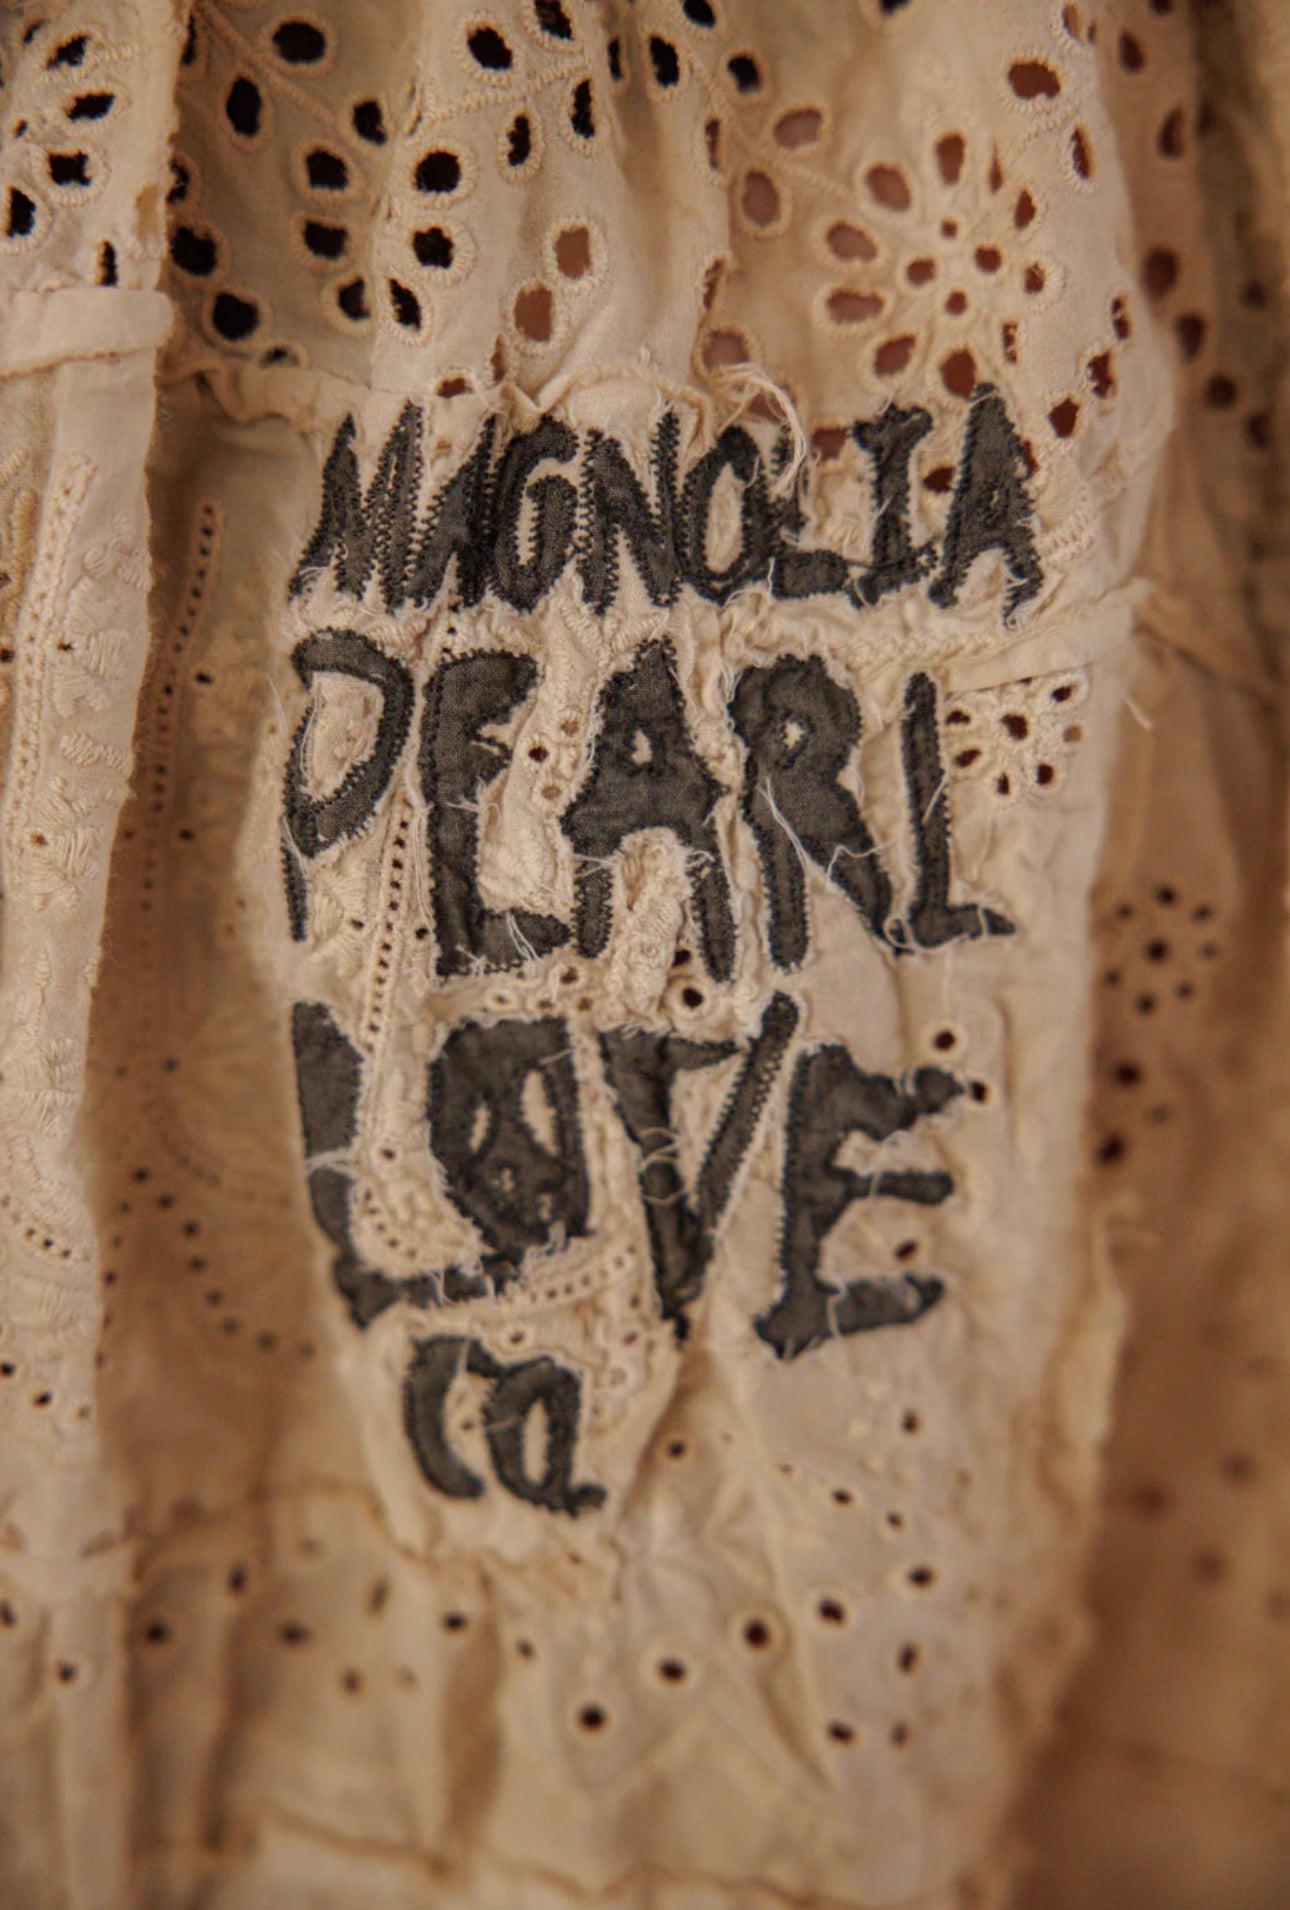 MAGNOLIA
PEARL
LOVE
CO.